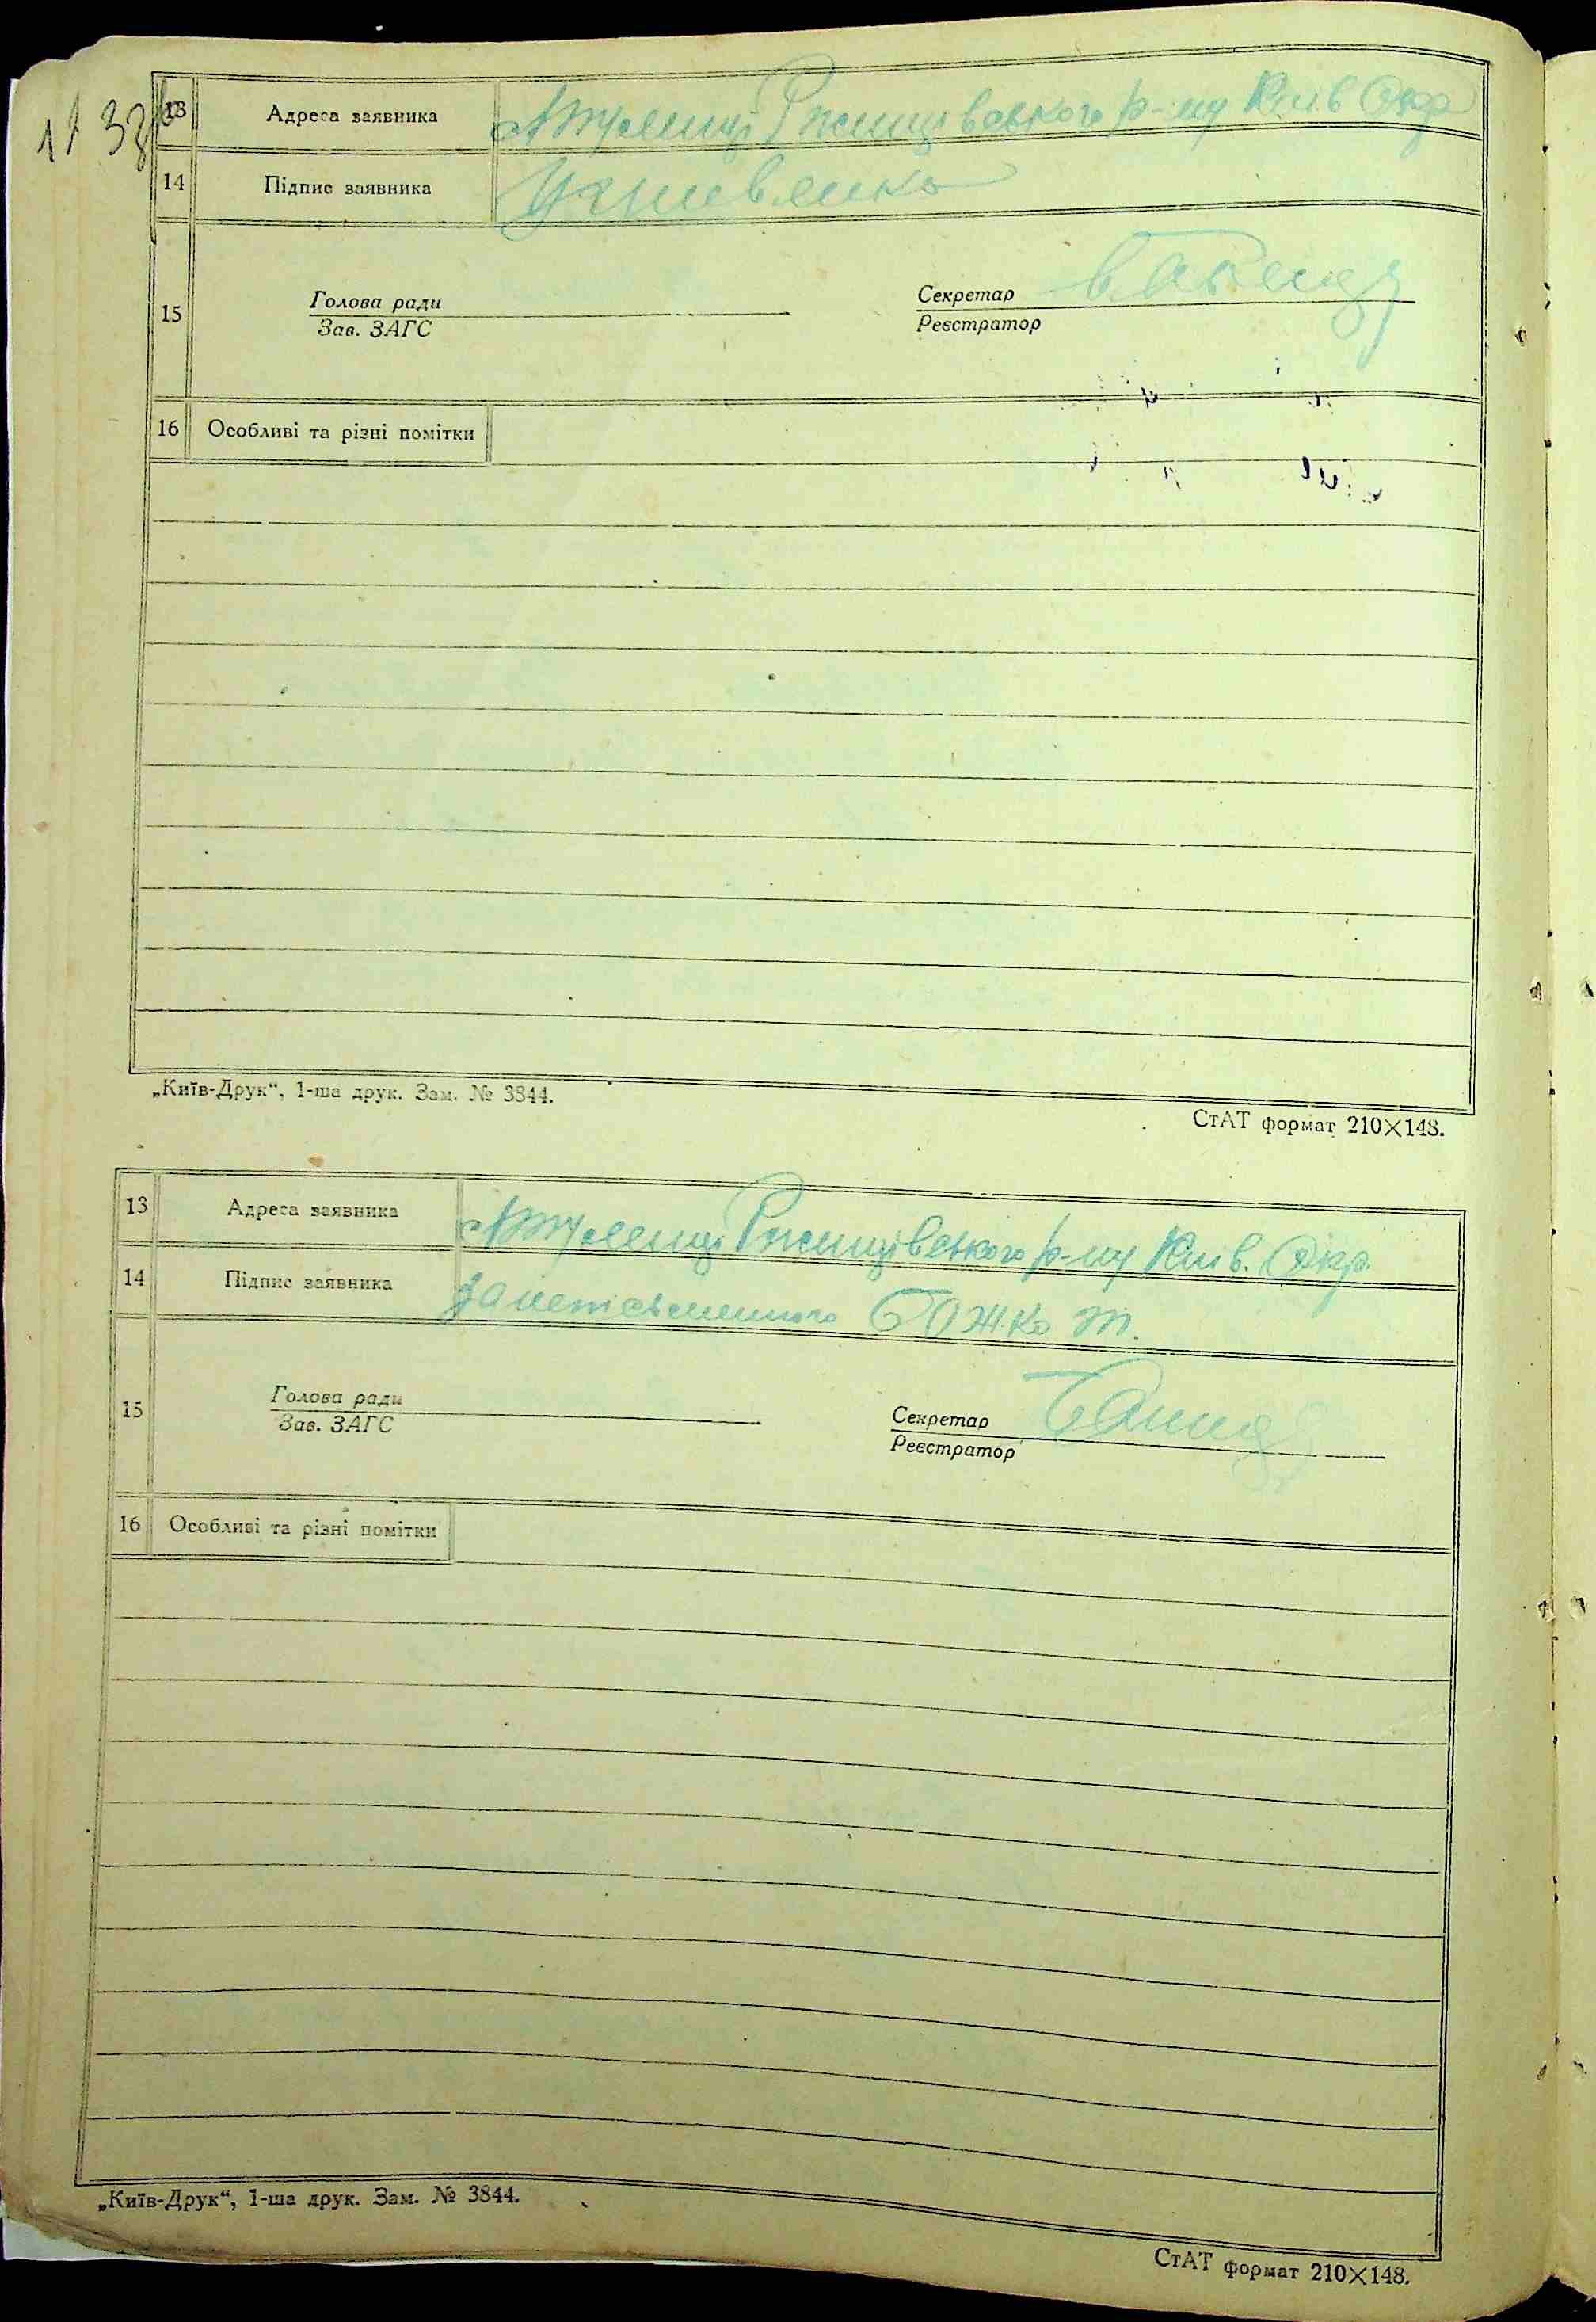 13 Адреса заявника Ржищівського р-ну Київ Окр
14 Підпис заявника
Голова ради Секретар
15
Зав. ЗАГС Реєстратор
16 Особливі та різні помітки
„Київ-Друк“, 1-ша друк. Зам. № 3844.
СтАТ формат 210×148.
13 Адреса заявника Ржищівського р-ну Київ. Окр.
14 Підпис заявника за неписьменного Божко т.
Голова ради Секретар
15
Зав. ЗАГС Реєстратор
16 Особливі та різні помітки
„Київ-Друк“, 1-ша друк. Зам. № 3844.
СтАТ формат 210×148.